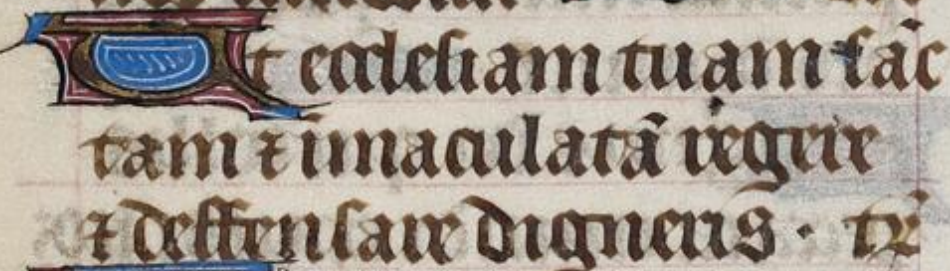 Ut ecclesiam tuam sãc
tam ⁊ imaculatã regere
⁊ deffensare digneris · te